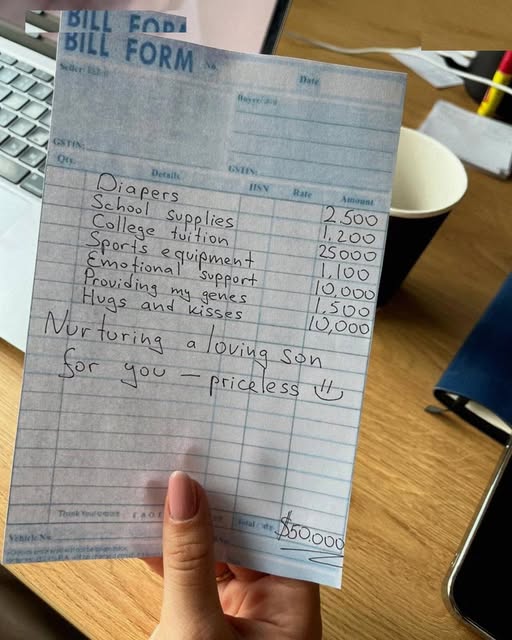 BILL FORM
BILL FORM No.
Date
Seller
Buyer
GSTIN:
GSTIN:
Qty. Details HSN Rate Amount
Diapers 2,500
School supplies 1,200
College tuition 25000
Sports equipment 1,100
Emotional support 10,000
Providing my genes 1,500
Hugs and kisses 10,000
Nurturing a loving son
for you – priceless
Total $50,000
Vehicle No